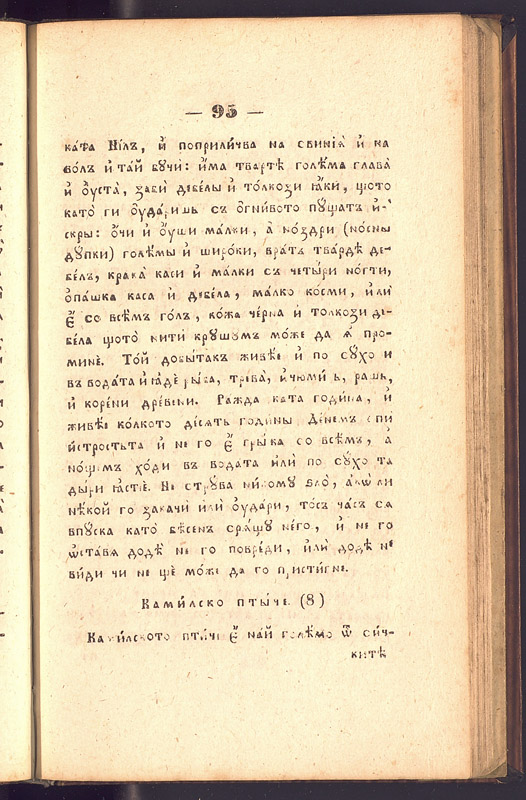 — 95 —
каѳа Ні́лъ, и҆ поприли́чва на свинїѧ̀ и҆ на
во́лъ и҆ та́й бучѝ: и҆́ма тва́ртѣ голѣ́ма глава̀
и҆ ᲂу҆ста̀, забѝ дебе́лы и҆ то́лкози ꙗ҆́ки, щото
като̀ ги ᲂу҆да́ришь съ ѻ҆гни́вото пꙋ́щатъ и҆́-
скры: ѻ҆́чи и҆ ᲂу҆́ши ма́лки, а҆ но́здри (но́сны
дꙋ́пки) голѣ́мы и҆ широ́ки, вра́тъ тва́рдѣ де-
бе́лъ, крака̀ ка́си и҆ ма́лки съ четы́ри но́гти,
ѻ҆па́шка ка́са и҆ дебе́ла, ма́лко ко́сми, и҆́ли
є҆̀ со всѣ́мъ го́лъ, ко́жа че́рна и҆ то́лкози де-
бе́ла щото̀ нитѝ крꙋшꙋ́мъ мо́же да ѧ҆̀ про-
ми́не. То́й добы́такъ живѣ́е и҆ по сꙋ́хо и҆
въ вода́та и҆ ꙗ҆де́ ры́ба, трева̀, и҆чюми́къ, ра́шъ,
и҆ коре́ни древе́ни. Ра́жда ка́та годи́на, и҆
живѣ́е ко́лкото де́сѧть годи́ны Де́немъ спи
и҆стростьта и҆ не го є҆̀ гры́жа со всѣ́мъ, а҆
но́щемъ хо́ди въ вода́та и҆лѝ по сꙋ́хо та
ды́ри ꙗ҆́стїе. Не стрꙋ́ва ни́кому ѕло̀, а҆лѡ̀ ли
нѣ́кой го зака́чи и҆лѝ ᲂу҆да́ри, то́съ ча́съ сѧ
впꙋ́ска като̀ бѣ́сенъ срѧ́щꙋ не́го, и҆ не го
ѡ҆ста́вѧ додѐ не го повре́ди, и҆лѝ додѐ не
ви́ди чи не щѐ мо́же да го прⷭи́стигне.
Ками́лско пты́че. (8)
Ками́лското пты́че є҆̀ на́й голѣ́мо ѿ си́ч-
китѣ